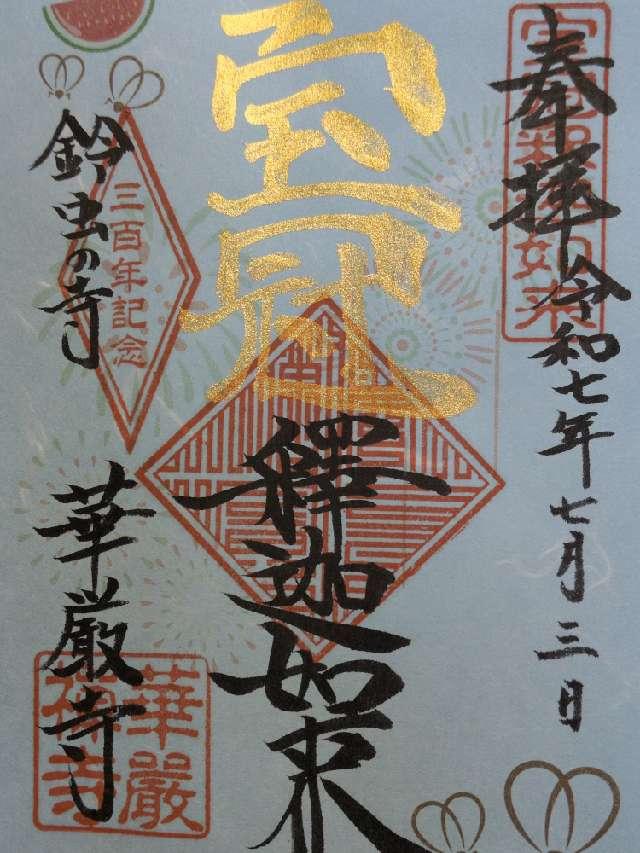 奉拝
令和七年七月三日
宝冠
釋迦如来
鈴虫の寺
華厳寺
三百年記念
華嚴